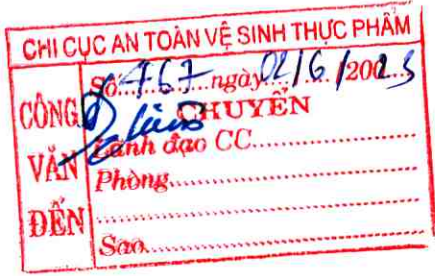 CHI CỤC AN TOÀN VỆ SINH THỰC PHẨM
CÔNG VĂN ĐẾN
Số 467 ngày 02/6/2023
CHUYỂN
Lãnh đạo CC
Phòng
Sao